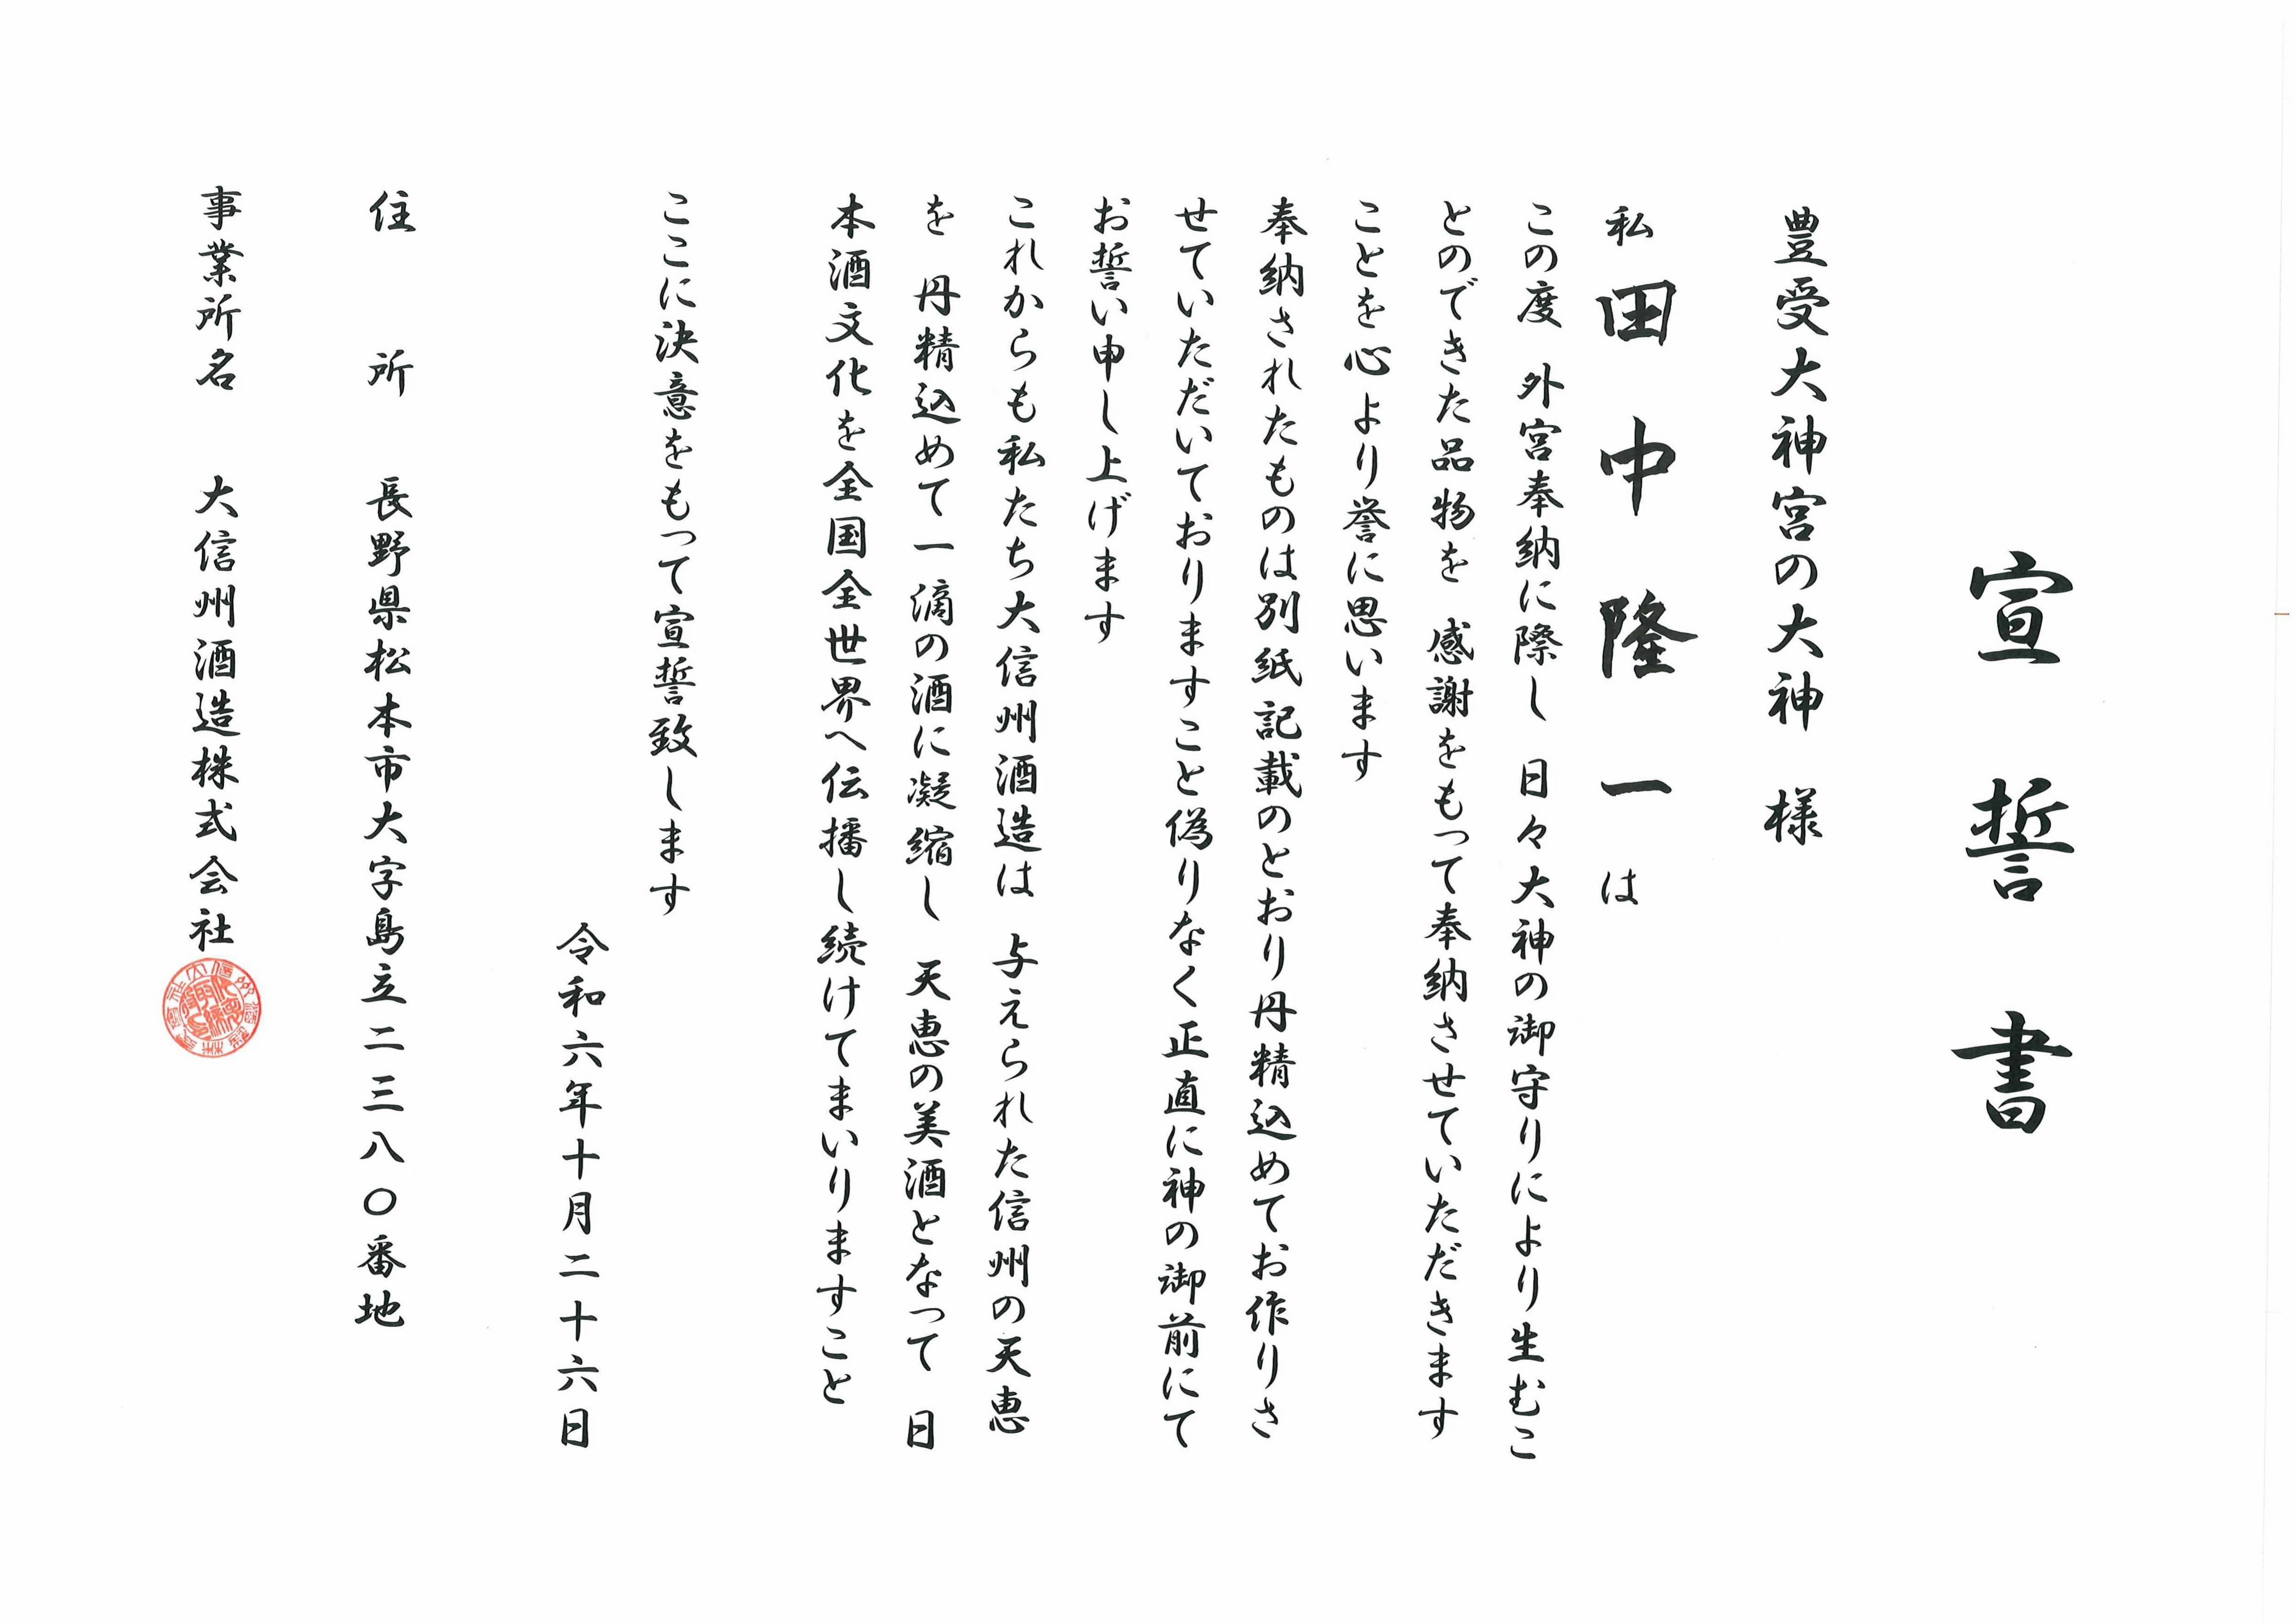 宣誓書
豊受大神宮の大神 様
私 田中隆一 は
この度 外宮奉納に際し 日々大神の御守りにより生むこ
とのできた品物を 感謝をもって奉納させていただきます
ことを心より誉に思います
奉納されたものは別紙記載のとおり丹精込めてお作りさ
せていただいておりますこと偽りなく正直に神の御前にて
お誓い申し上げます
これからも私たち大信州酒造は 与えられた信州の天恵
を 丹精込めて一滴の酒に凝縮し 天恵の美酒となって 日
本酒文化を全国全世界へ伝播し続けてまいりますこと
ここに決意をもって宣誓致します
令和六年十月二十六日
住所 長野県松本市大字島立二三八〇番地
事業所名 大信州酒造株式会社